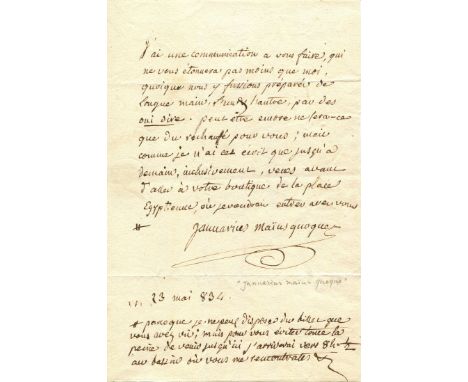 J'ai une communication a vous faire, qui
ne vous étonnera pas moins que moi,
quoique nous y fussions préparés de
longue main, l'un & l'autre, par des
oui dire. peut être encore ne sera-ce
que du rechauffé pour vous; mais
comme je n'ai cet ecrit que jusqu'à
demain, inclusivement, venez avant
d'aller à votre boutique de la place
Egyptienne où je voudrois entrer avec vous
Januarius maïus quoque
"Januarius maïus quoque"
23 mai 834.
parceque je ne peux disposer du billet que
vous avez vu; mais pour vous éviter toute la
peine de venir jusqu'ici j'arriverai vers 8h ½
au où vous me rencontrerez